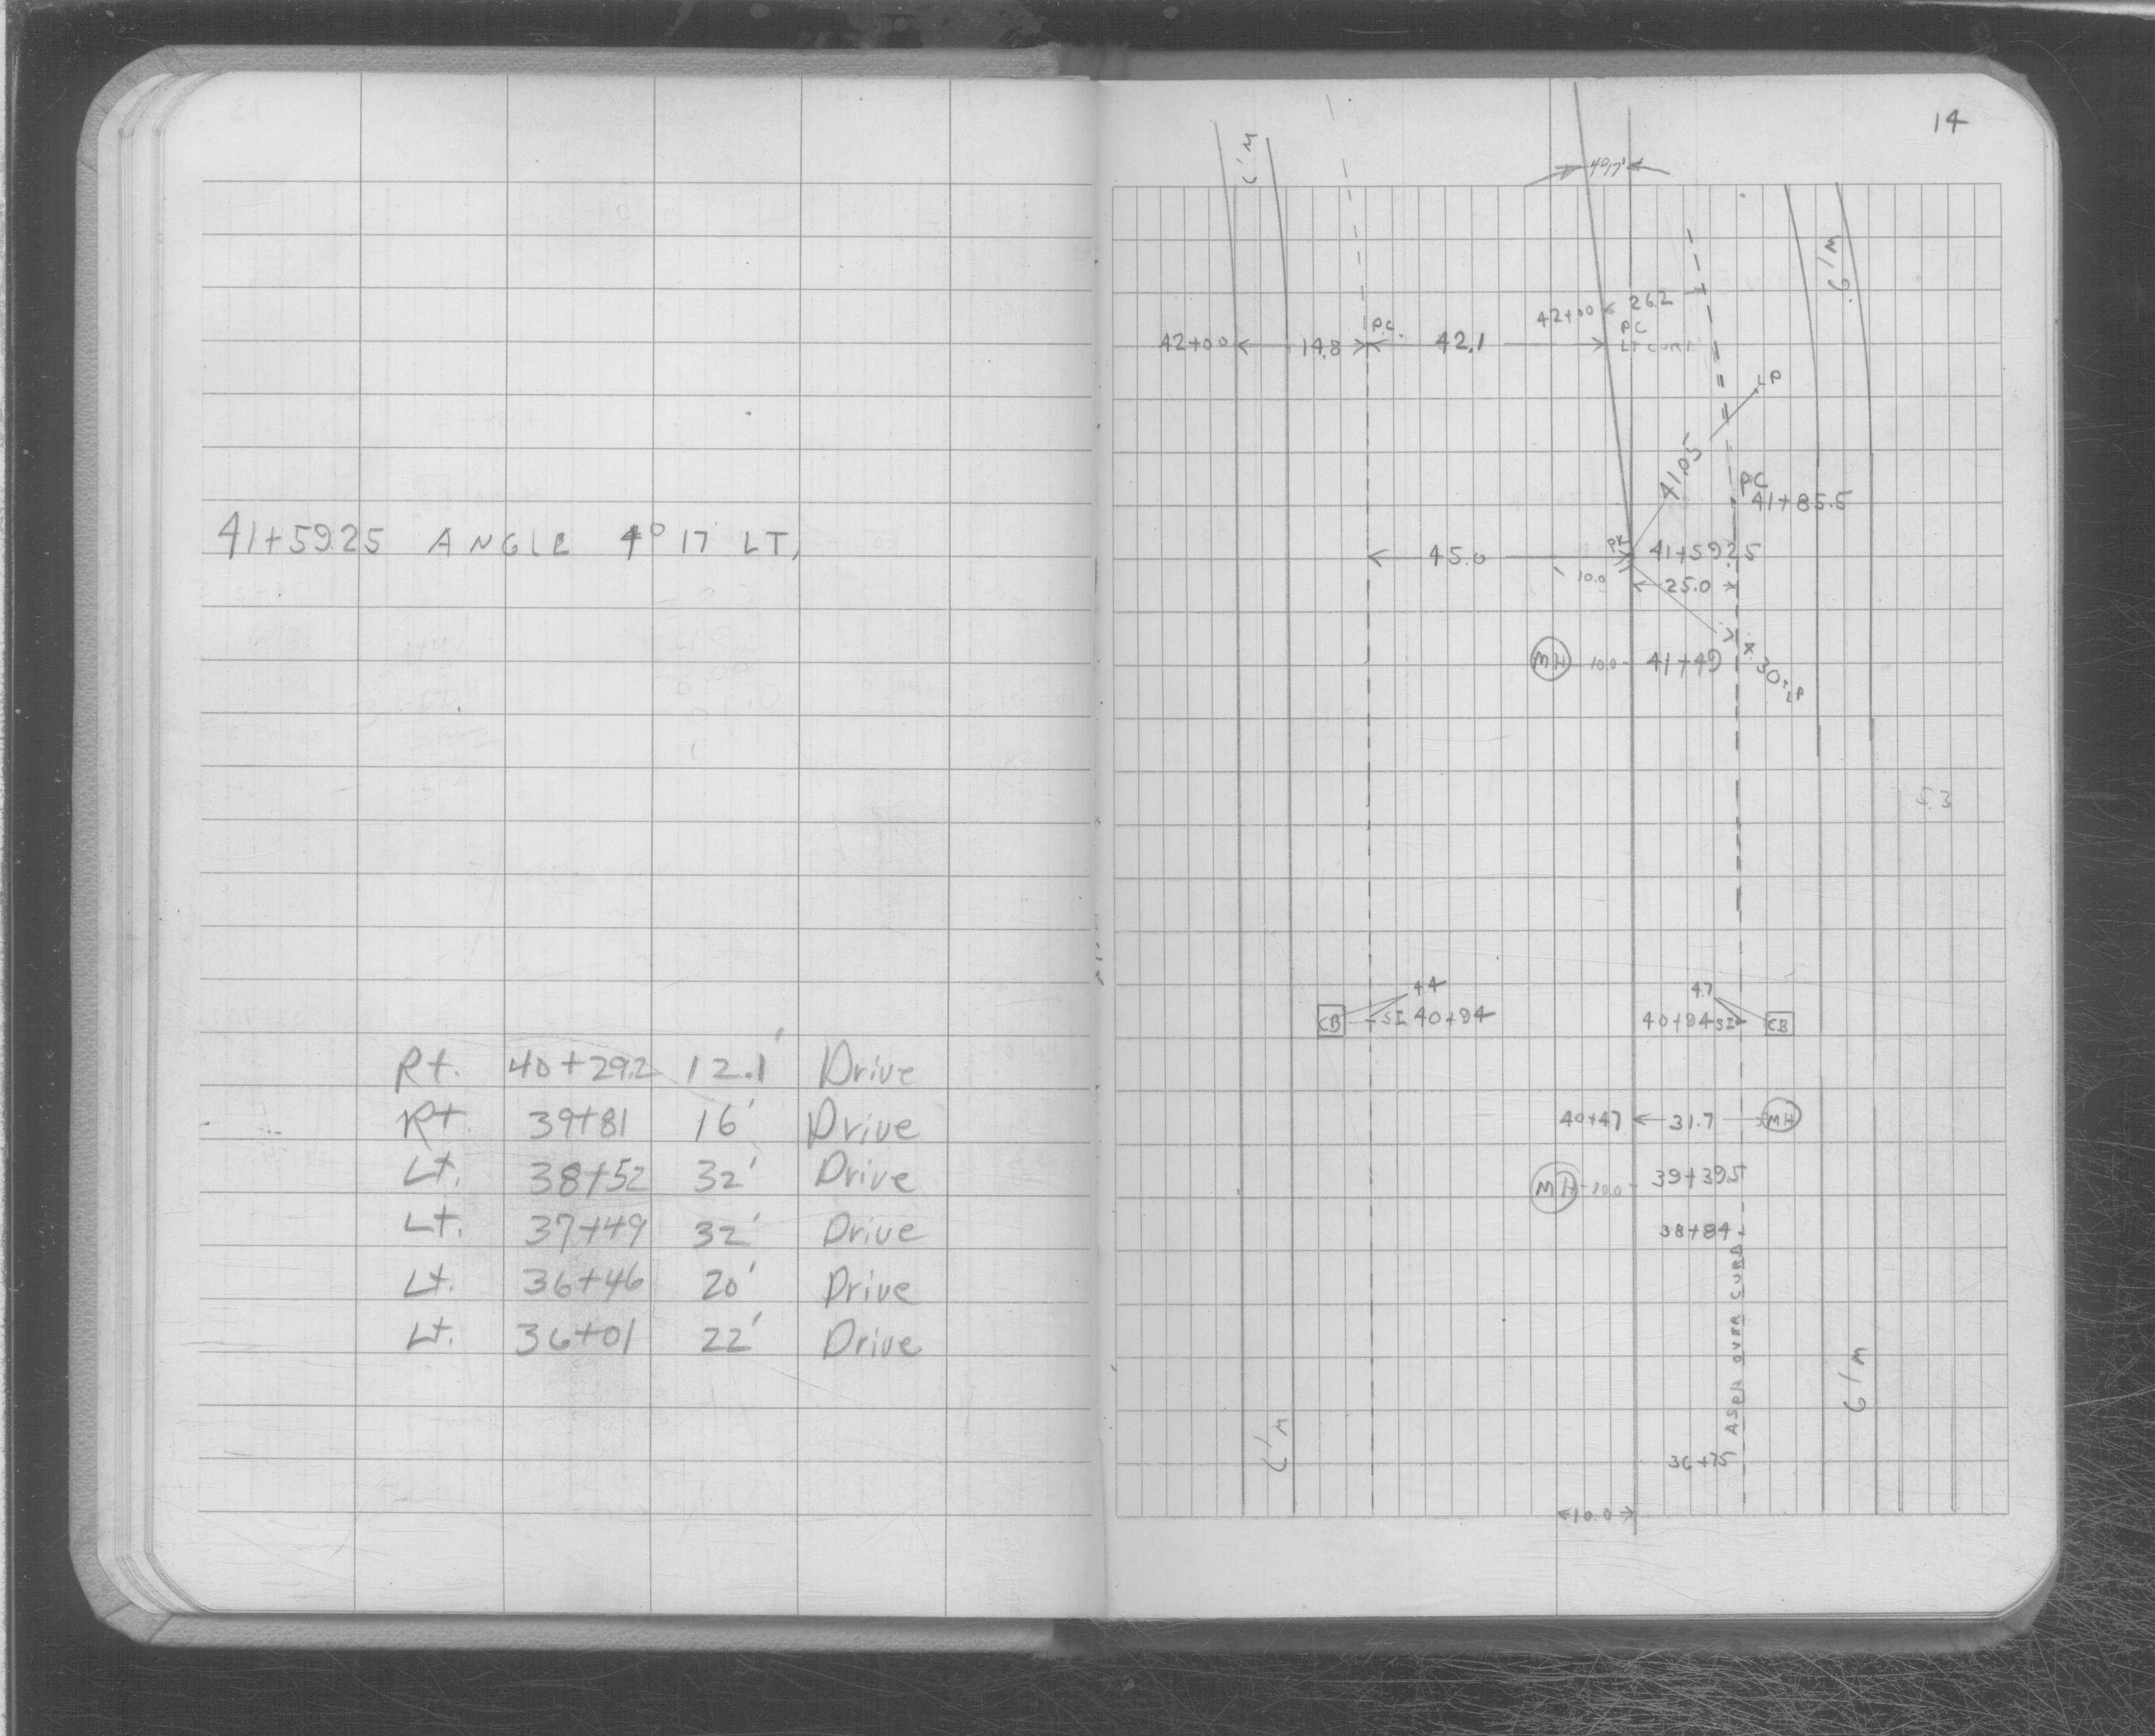 41+59.25 ANGLE 4° 17' LT.
Rt. 40+29.2 12.1' Drive
Rt. 39+81 16' Drive
Lt. 38+52 32' Drive
Lt. 37+49 32' Drive
Lt. 36+46 20' Drive
Lt. 36+01 22' Drive
14
6'W
4°17'
6'W
42+00 26.2
PC
42+00 14.8 P.C. 42.1 LT CURB
LP
41.05
PC
41+85.5
45.0 PK 41+59.25
10.0 25.0
MH 10.0 41+49 X 30. LP
5.3
44 47
CB SI 40+94 40+94 SI CB
40+47 31.7 MH
MH 10.0 39+39.5
38+84
ASPH OVER CURB
6'W
6'W
36+75
10.0